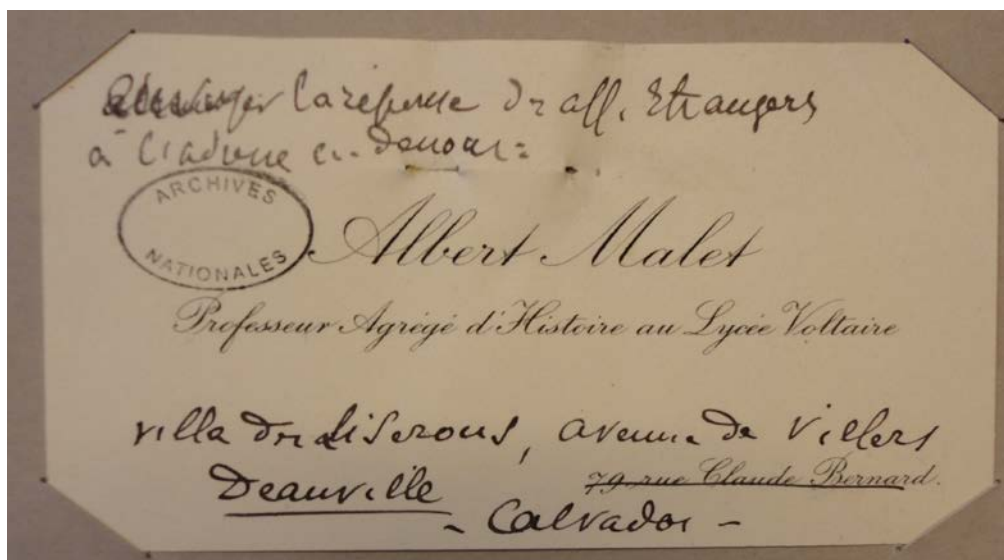 la réponse des aff. Etrangers
à l'adresse ci-dessous =
ARCHIVES
NATIONALES
Albert Malet
Professeur Agrégé d'Histoire au Lycée Voltaire
villa des Liserons, avenue de Villers
79, rue Claude Bernard.
Deauville
- Calvados -